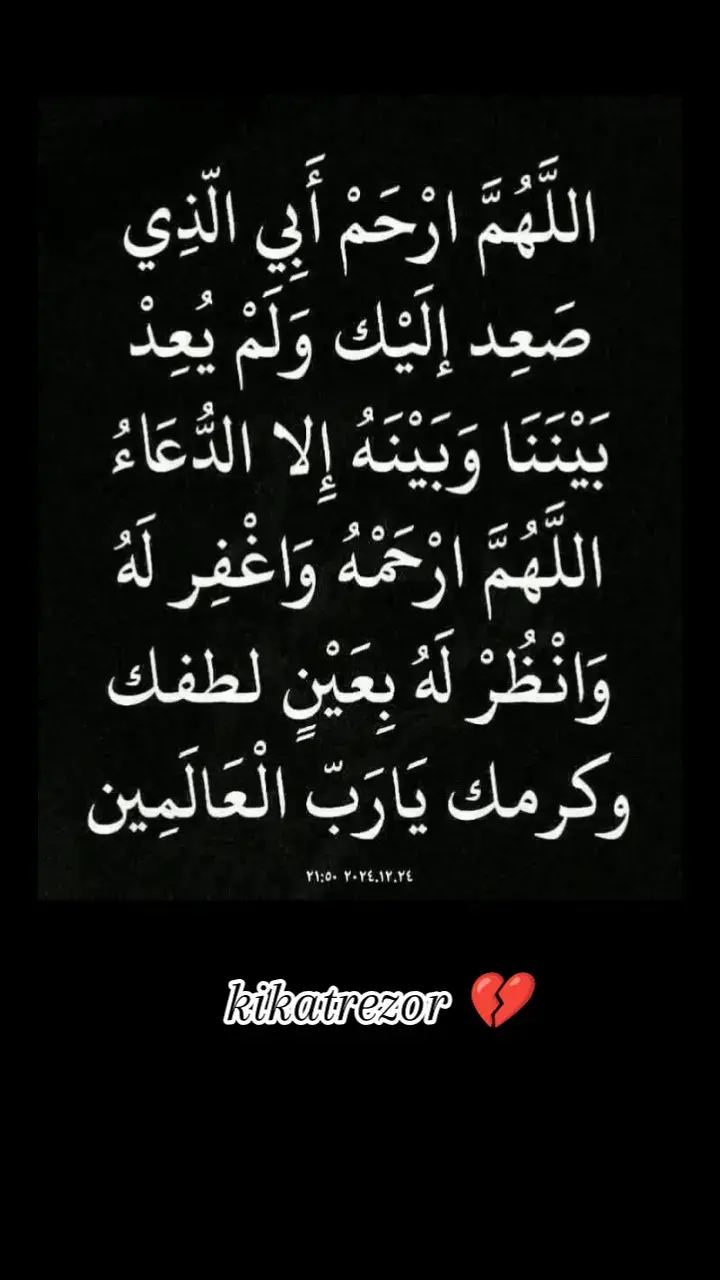 اللَّهُمَّ ارْحَمْ أَبِي الّذِي
صَعِد إلَيْك وَلَمْ يُعِدْ
بَيْنَنَا وَبَيْنَهُ إِلا الدُّعَاءُ
اللَّهُمَّ ارْحَمْهُ وَاغْفِر لَهُ
وَانْظُرْ لَهُ بِعَيْنٍ لطفك
وكرمك يَارَبّ الْعَالَمِين
٢١:٥٠ ٢٠٢٤.١٢.٢٤
kikatrezor 💔